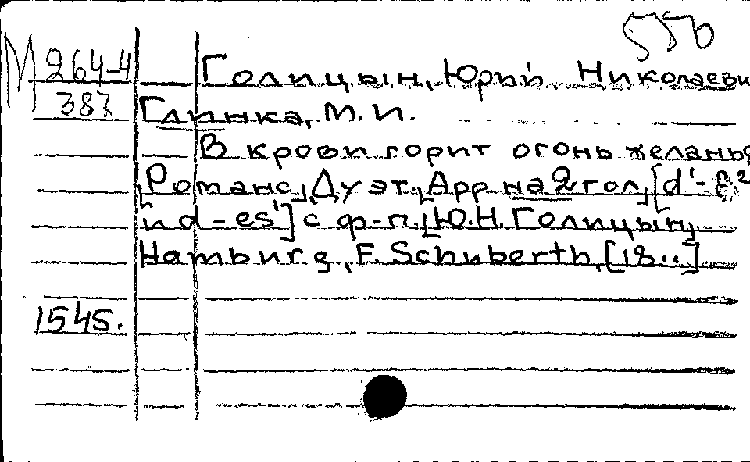 550
М 264-4
387
Голицын, Юрий Николаеви
Глинка, М. И.
В крови горит огонь желанья
[Романс], Дуэт. Арр. на 2 гол. [d'-
и d-es'] с ф-п. [Ю.Н. Голицын]
Hamburg, F. Schuberth, [18..]
1545.